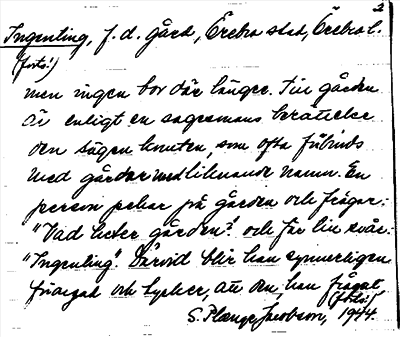 2
Ingenting, f. d. gård, Örebro stad, Örebro l.
(forts.)
men ingen bor där längre. Till gården
är enligt en sagesmans berättelse
den sägen knuten, som ofta förbinds
med gårdar med liknande namn. En
person pekar på gården och frågar:
"Vad heter gården?" och får till svar:
"Ingenting". Därvid blir han synnerligen
förargad och tycker, att den, han frågat
(forts.)
S. Jacobson, 1944.